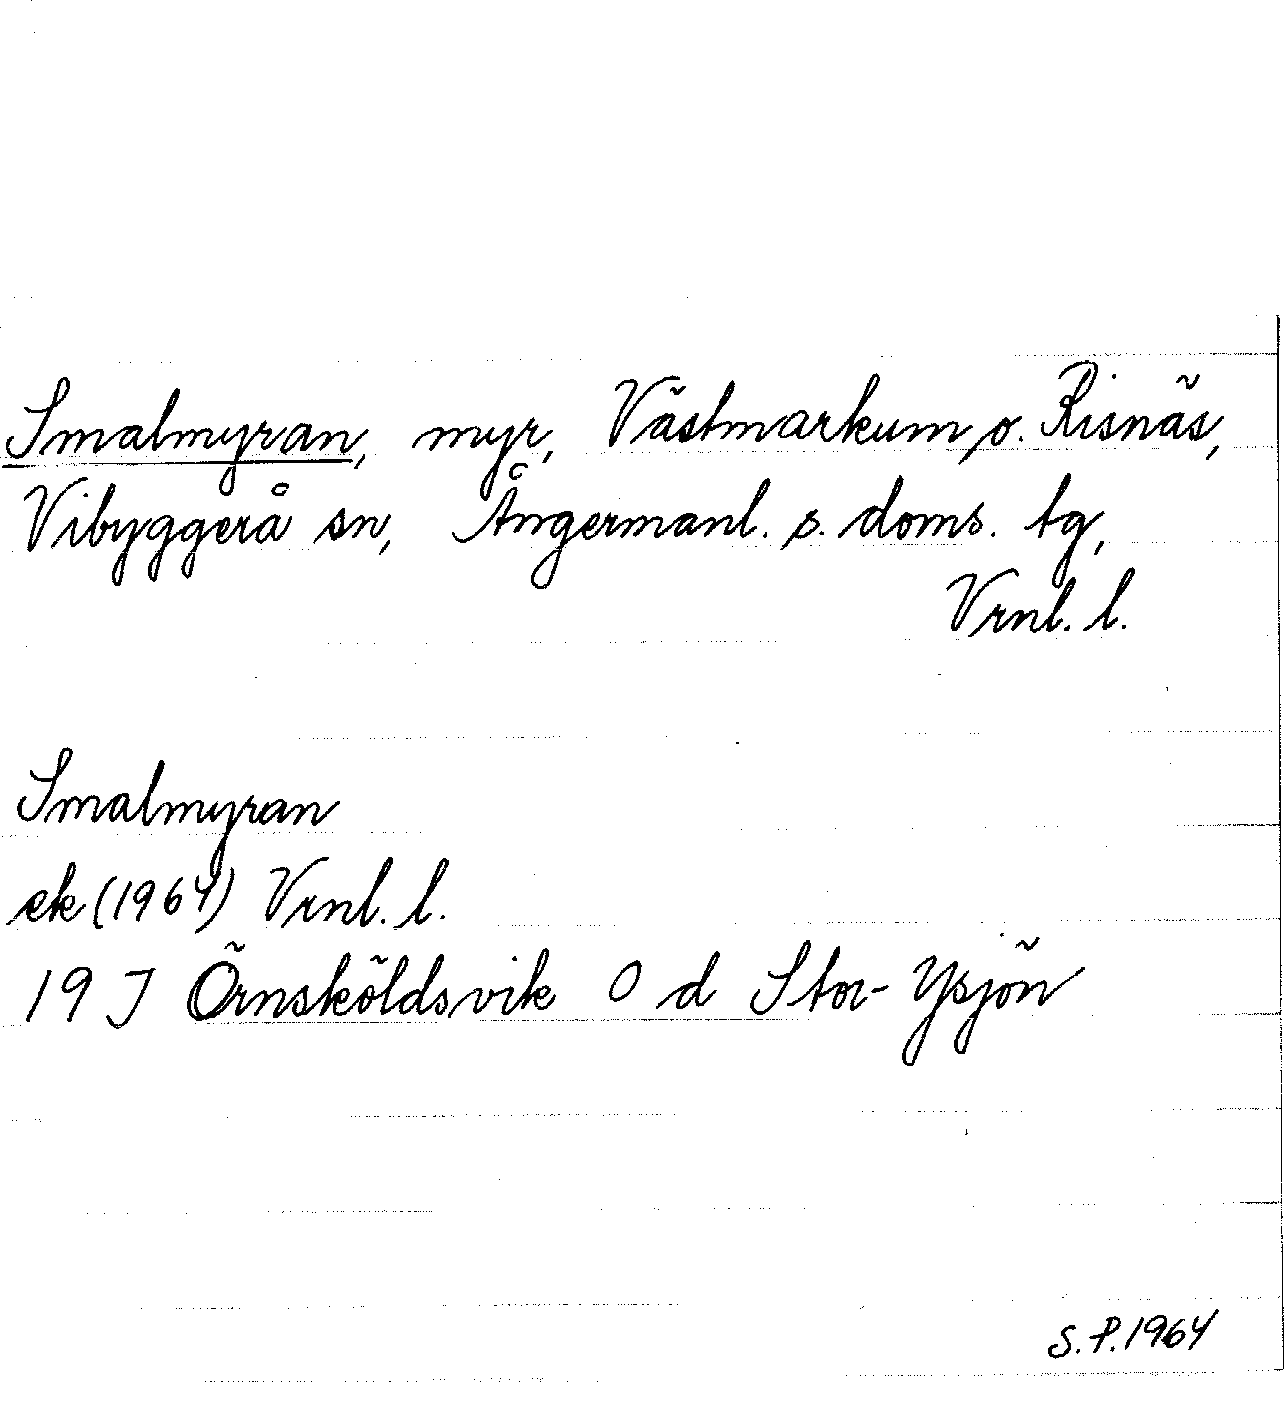 Smalmyran, myr, Västmarkum o. Risnäs,
Vibyggerå sn, Ångermanl. s. doms. tg,
Vrnl. l.
Smalmyran
ek (1964) Vrnl. l.
19 J Örnsköldsvik O d Stor-Ysjön
S.P.1964